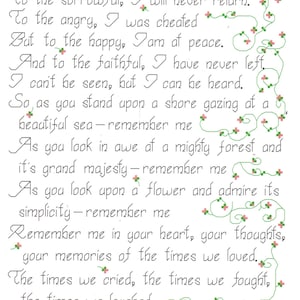 to the sorrowful, I will never return.
To the angry, I was cheated
But to the happy, I am at peace.
And to the faithful, I have never left
I can't be seen, but I can be heard.
So as you stand upon a shore gazing at a
beautiful sea - remember me
As you look in awe at a mighty forest and
it's grand majesty - remember me
As you look upon a flower and admire its
simplicity - remember me
Remember me in your heart, your thoughts,
your memories of the times we loved.
The times we cried, the times we fought,
the times we laughed